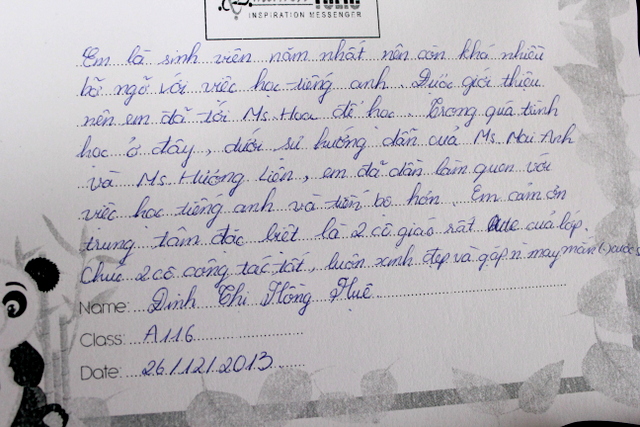 INSPIRATION MESSENGER
Em là sinh viên năm nhất nên còn khá nhiều
bỡ ngỡ với việc học tiếng anh. Được giới thiệu
nên em đã tới Ms. Hoa để học. Trong quá trình
học ở đây, dưới sự hướng dẫn của Ms. Mai Anh
và Ms. Hương Liên, em đã dần làm quen với
việc học tiếng anh và tiến bộ hơn. Em cảm ơn
trung tâm đặc biệt là 2 cô giáo rất của lớp.
Chúc 2 cô công tác tốt, luôn xinh đẹp và gặp n' may mắn (-)
Name: Đinh Thị Hồng Huệ
Class: A116
Date: 26/12/2013